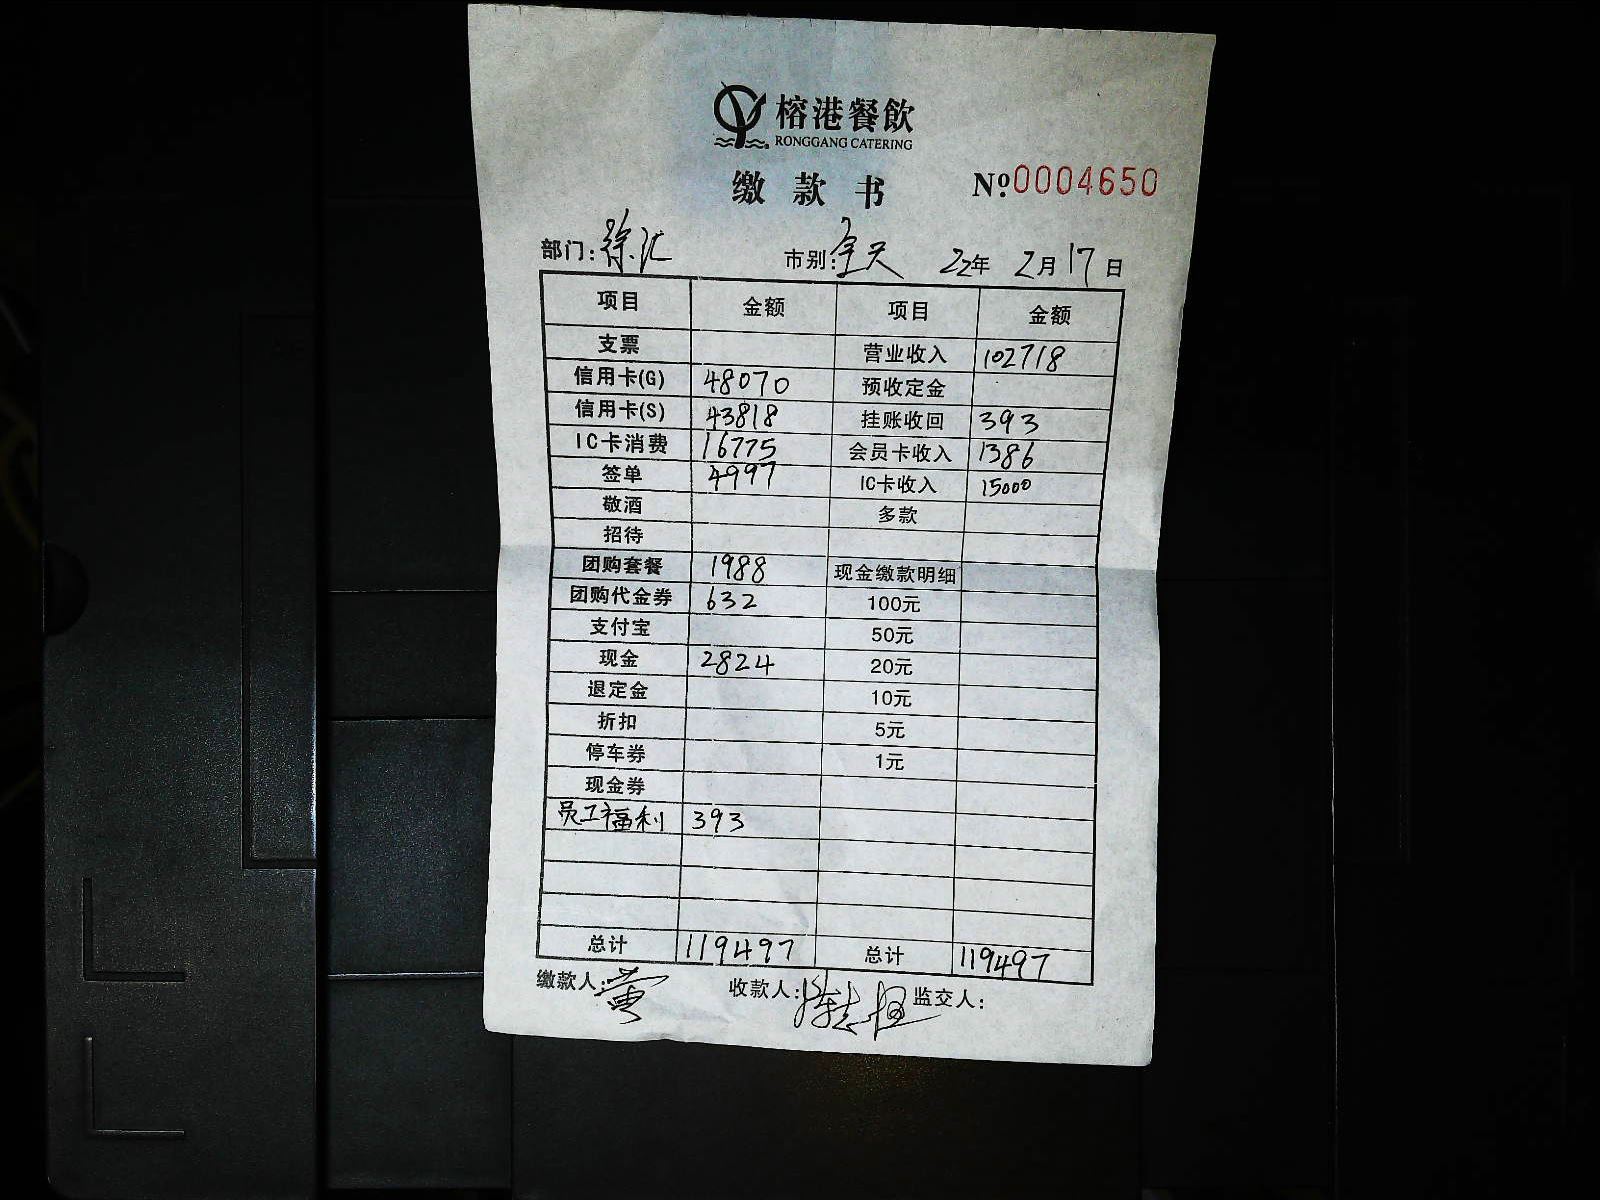 榕港餐飲
RONGGANG CATERING
缴款书 №0004650
部门:徐汇 市别:全天 22年 2月17日
项目 金额 项目 金额
支票 营业收入 102718
信用卡(G) 48070 预收定金
信用卡(S) 43818 挂账收回 393
IC卡消费 16775 会员卡收入 1386
签单 4997 IC卡收入 15000
敬酒 多款
招待
团购套餐 1988 现金缴款明细
团购代金券 632 100元
支付宝 50元
现金 2824 20元
退定金 10元
折扣 5元
停车券 1元
现金券
员工福利 393
总计 119497 总计 119497
缴款人: 收款人: 监交人: